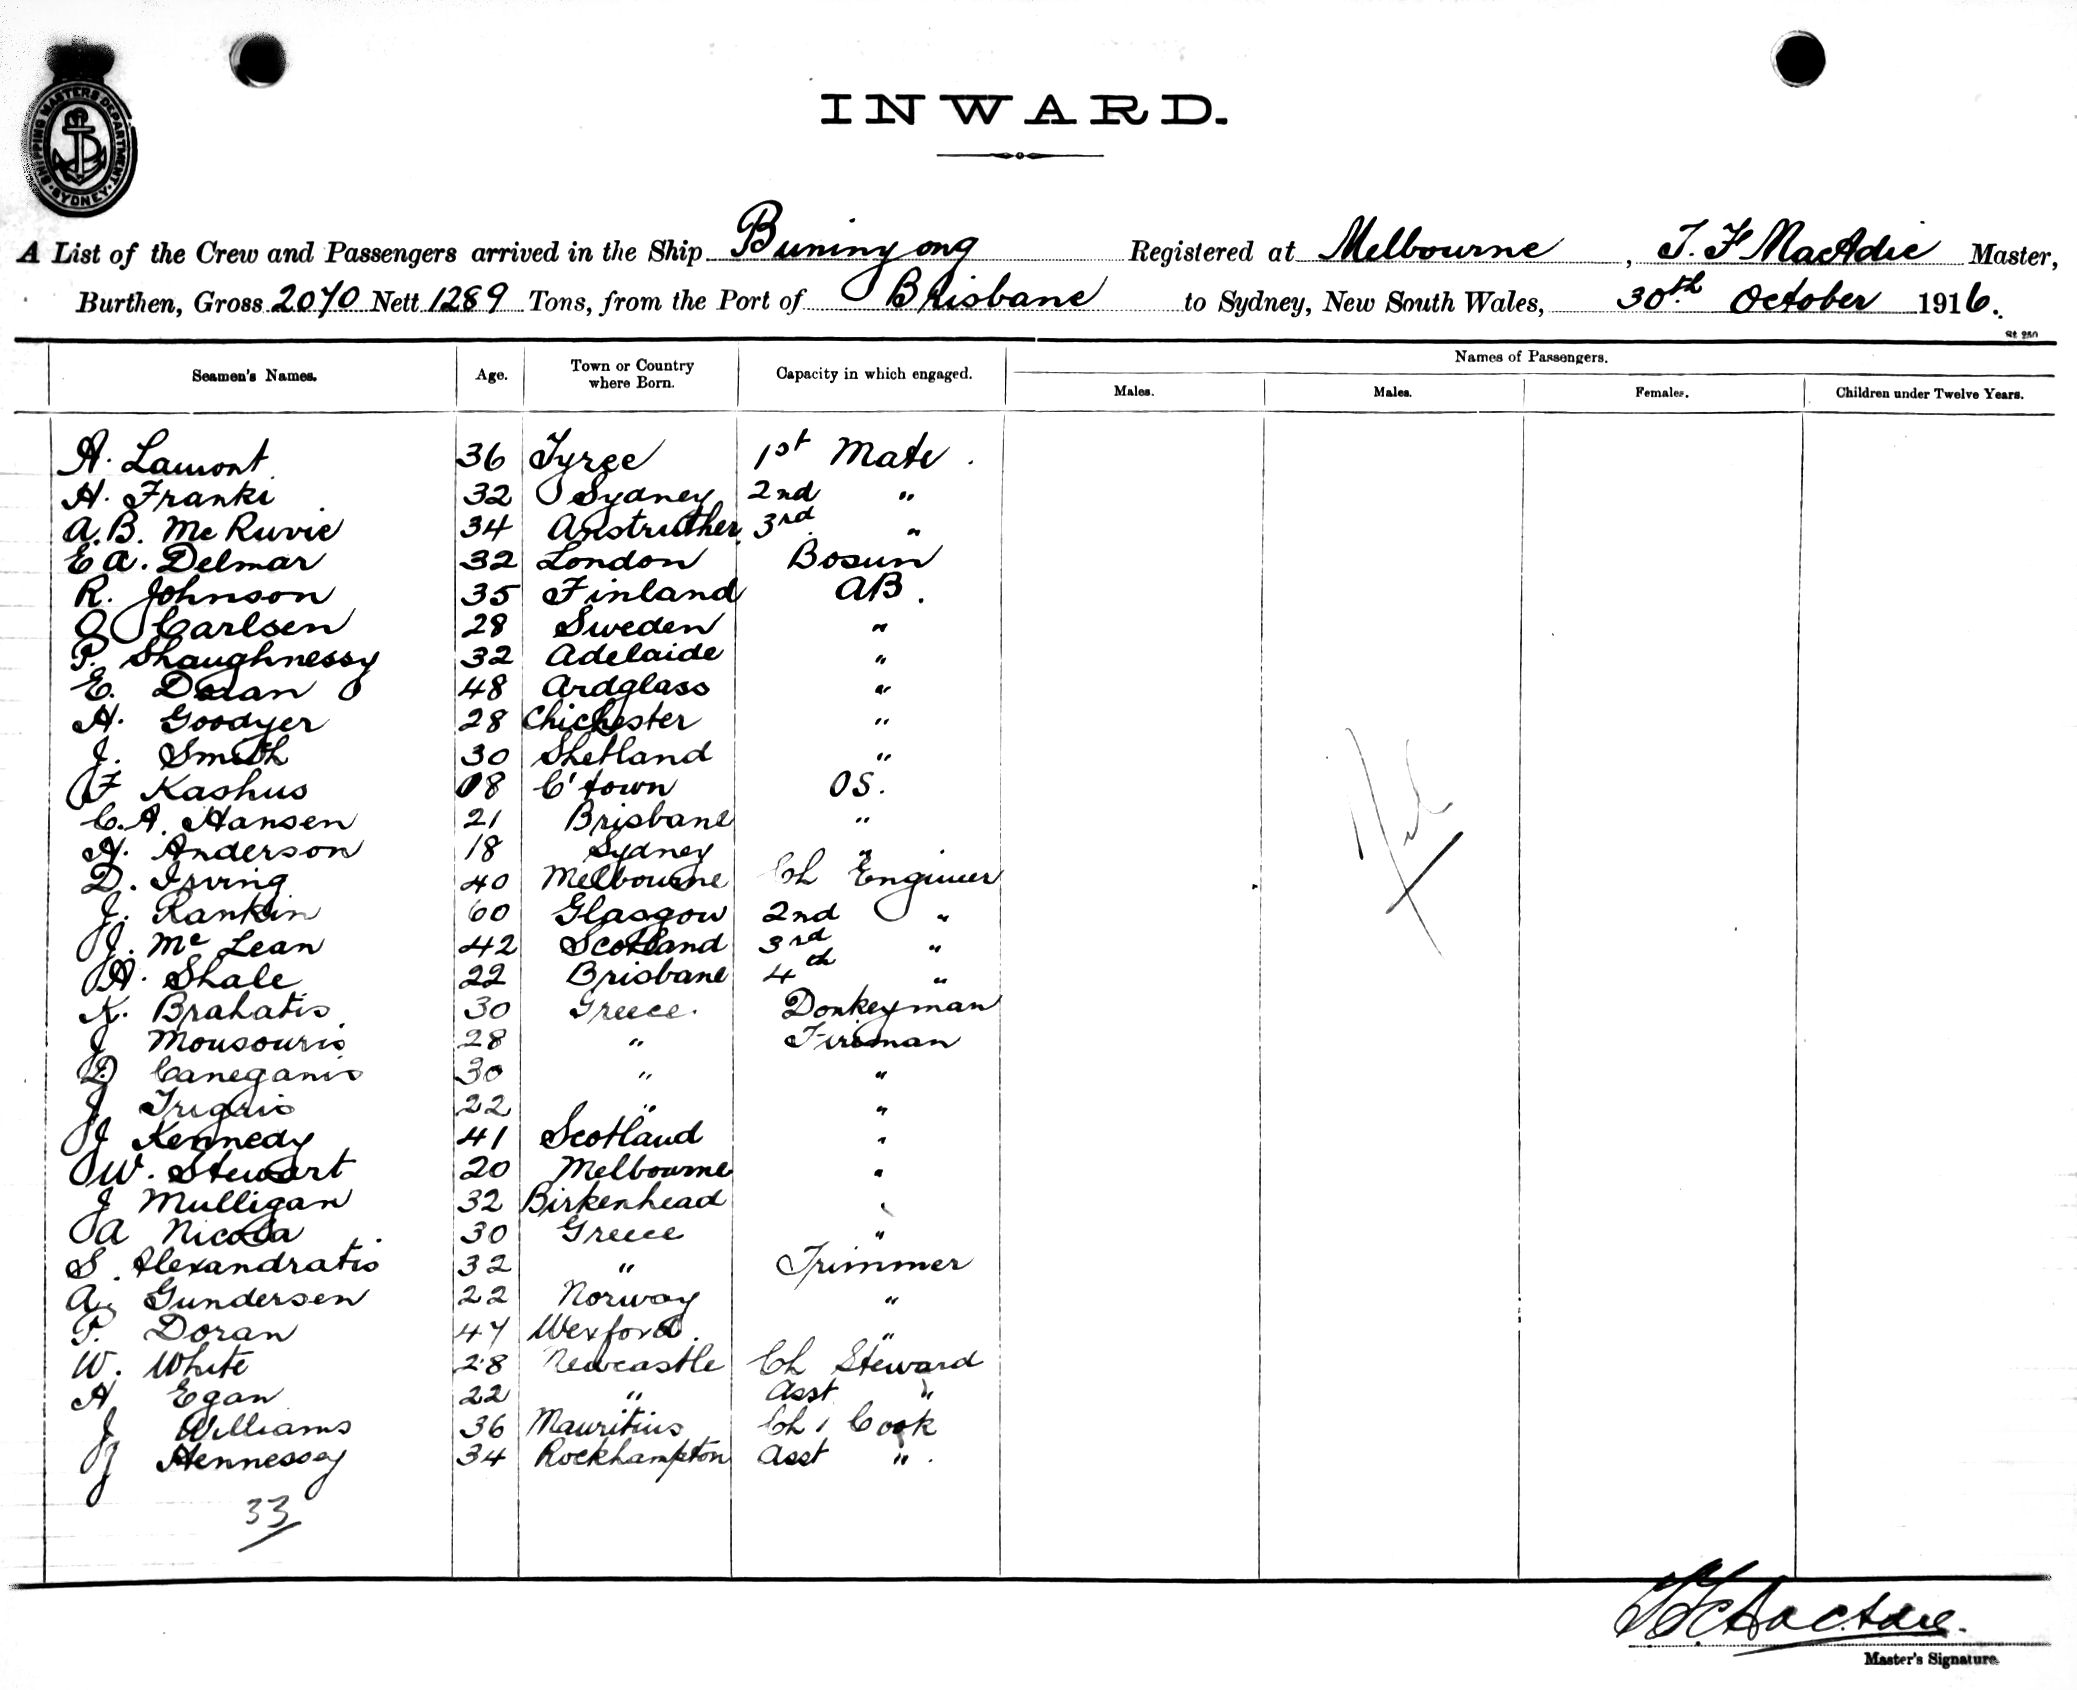 SHIPPING MASTERS DEPARTMENT · SYDNEY ·
INWARD.
A List of the Crew and Passengers arrived in the Ship Buninyong Registered at Melbourne, T. F MacAdie Master,
Burthen, Gross 2070 Nett 1289 Tons, from the Port of Brisbane to Sydney, New South Wales, 30th October 1916.
St 250
Seamen's Names. Age. Town or Country where Born. Capacity in which engaged. Names of Passengers.
Males. Males. Females. Children under Twelve Years.
A. Lamont 36 Tyree 1st Mate.
H. Franki 32 Sydney 2nd "
A.B. McRuvie 34 Anstruther 3rd "
E A. Delmar 32 London Bosun
R. Johnson 35 Finland AB.
O Carlsen 28 Sweden "
P. Shaughnessy 32 Adelaide "
E. Doran 48 Ardglass "
H. Goodyer 28 Chichester "
J. Smith 30 Shetland "
F Kashus 18 C'town OS.
C.A. Hansen 21 Brisbane "
A. Anderson 18 Sydney "
D. Irving 40 Melbourne Ch Engineer
J. Rankin 60 Glasgow 2nd "
J. McLean 42 Scotland 3rd "
A. Shale 22 Brisbane 4th "
K. Brahatis 30 Greece. Donkeyman
J Mousouris 28 " Fireman
D Caneganis 30 " "
J Trigris 22 " "
J Kennedy 41 Scotland "
W. Stewart 20 Melbourne "
J Mulligan 32 Birkenhead "
A Nicola 30 Greece "
S. Alexandratis 32 " Trimmer
A. Gundersen 22 Norway "
P. Doran 47 Wexford "
W. White 28 Newcastle Ch Steward
A Egan 22 " Asst "
J Williams 36 Mauritius Ch Cook
J Hennessy 34 Rockhampton Asst ".
Nil
33
T F MacAdie.
Master's Signature